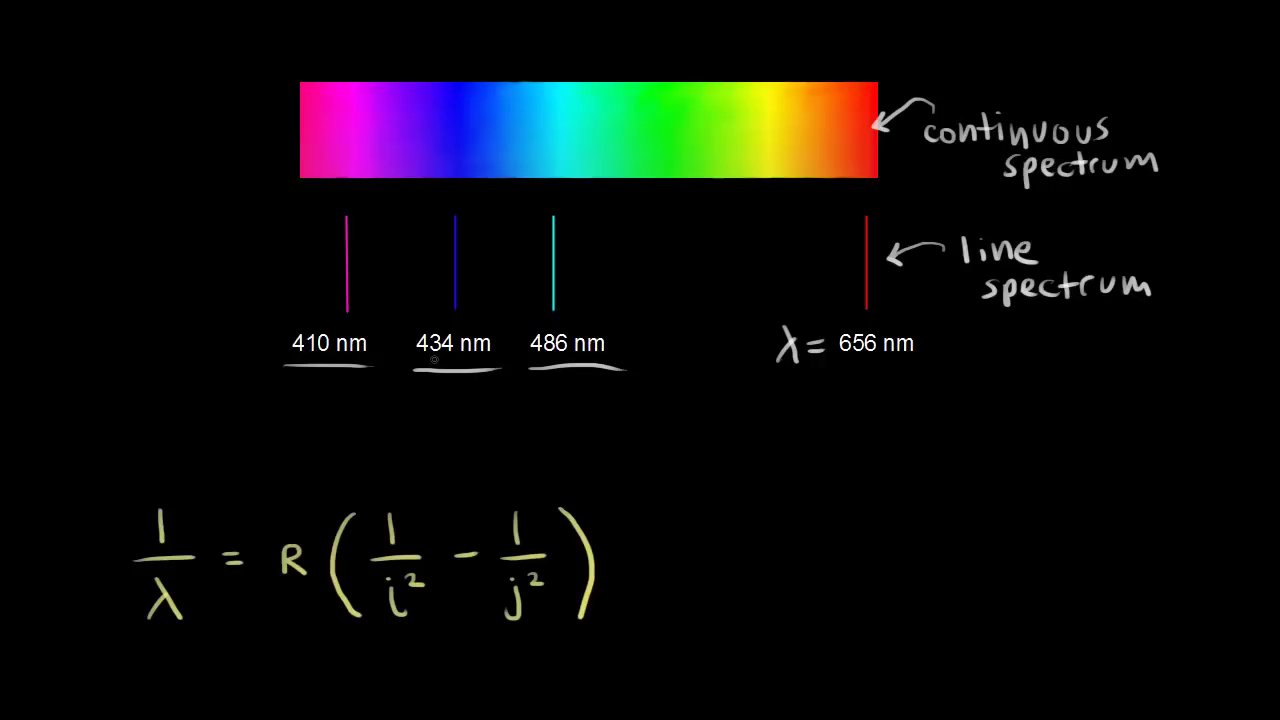 continuous
spectrum
line
spectrum
410 nm 434 nm 486 nm λ = 656 nm
1/λ = R (1/i² - 1/j²)